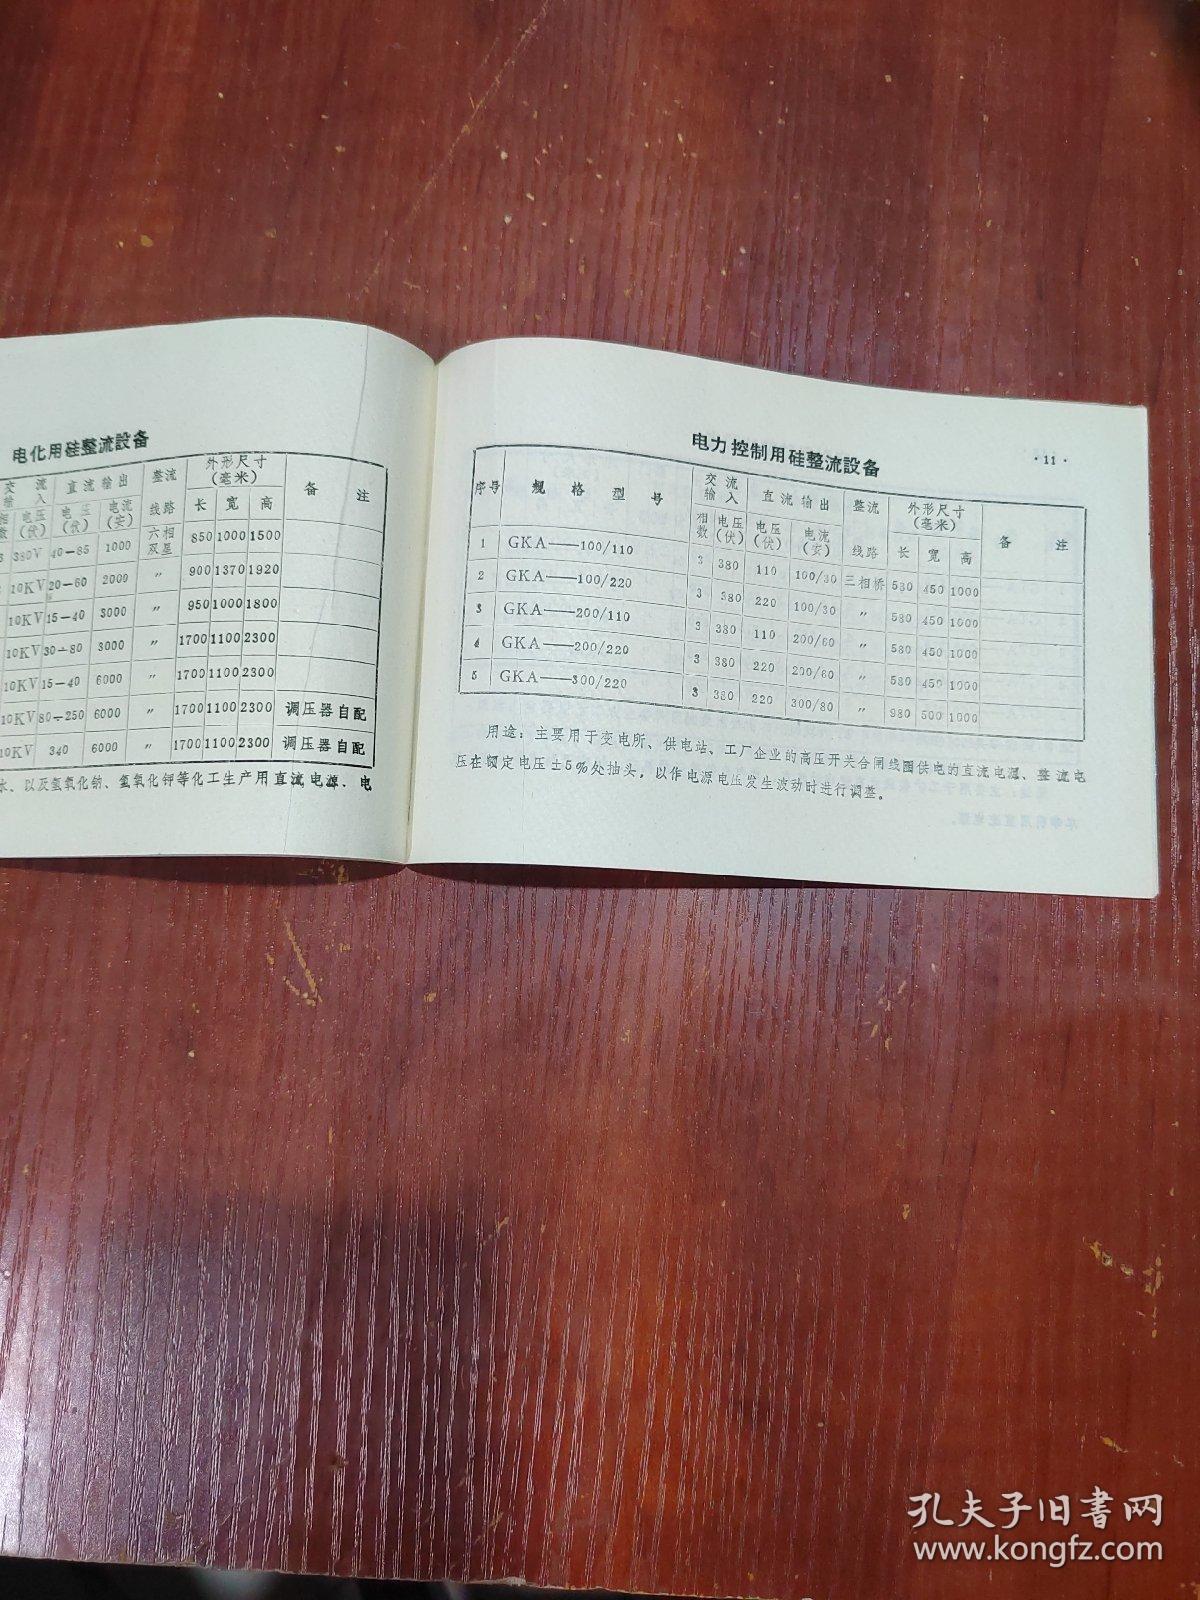 电化用硅整流設备
交流输入 直流输出 整流线路 外形尺寸(毫米) 备注
相数 电压(伏) 电压(伏) 电流(安) 长 宽 高
3 380V 40—85 1000 六相双星 850 1000 1500
10KV 20—60 2000 〃 900 1370 1920
10KV 15—40 3000 〃 950 1000 1800
10KV 30—80 3000 〃 1700 1100 2300
10KV 15—40 6000 〃 1700 1100 2300
10KV 80—250 6000 〃 1700 1100 2300 调压器自配
10KV 340 6000 〃 1700 1100 2300 调压器自配
水、以及氢氧化钠、氢氧化钾等化工生产用直流电源．电
·11·
电力控制用硅整流設备
序号 规格型号 交流输入 直流输出 整流线路 外形尺寸(毫米) 备注
相数 电压(伏) 电压(伏) 电流(安) 长 宽 高
1 GKA——100/110 3 380 110 100/30 三相桥 580 450 1000
2 GKA——100/220 3 380 220 100/30 〃 580 450 1000
3 GKA——200/110 3 380 110 200/60 〃 580 450 1000
4 GKA——200/220 3 380 220 200/60 〃 580 450 1000
5 GKA——300/220 3 380 220 300/80 〃 980 500 1000
用途：主要用于变电所、供电站、工厂企业的高压开关合闸线圈供电的直流电源、整流电
压在额定电压±5%处抽头，以作电源电压发生波动时进行调整。
孔夫子旧书网
www.kongfz.com